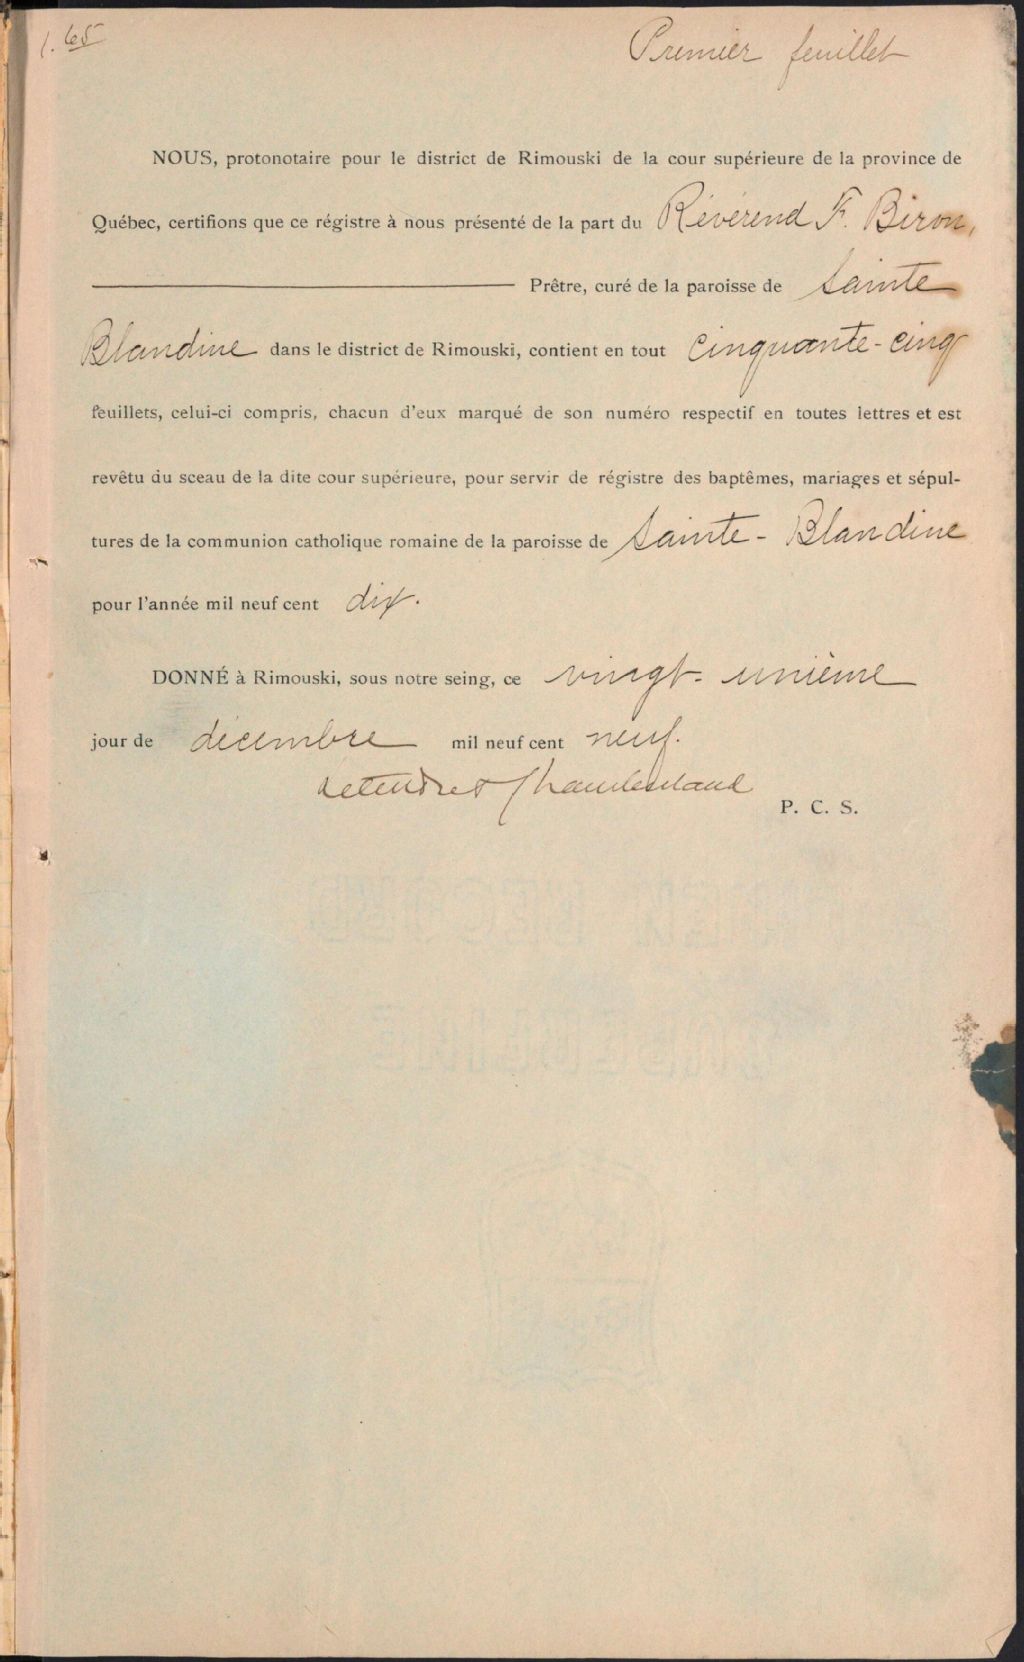 1.65
Premier feuillet
NOUS, protonotaire pour le district de Rimouski de la cour supérieure de la province de
Québec, certifions que ce régistre à nous présenté de la part du Révérend F. Biron,
Prêtre, curé de la paroisse de Sainte
Blandine dans le district de Rimouski, contient en tout cinquante-cinq
feuillets, celui-ci compris, chacun d'eux marqué de son numéro respectif en toutes lettres et est
revêtu du sceau de la dite cour supérieure, pour servir de régistre des baptêmes, mariages et sépul-
tures de la communion catholique romaine de la paroisse de Sainte-Blandine
pour l'année mil neuf cent dix.
DONNÉ à Rimouski, sous notre seing, ce vingt-unième
jour de décembre mil neuf cent neuf.
Letendre & Chamberland
P. C. S.